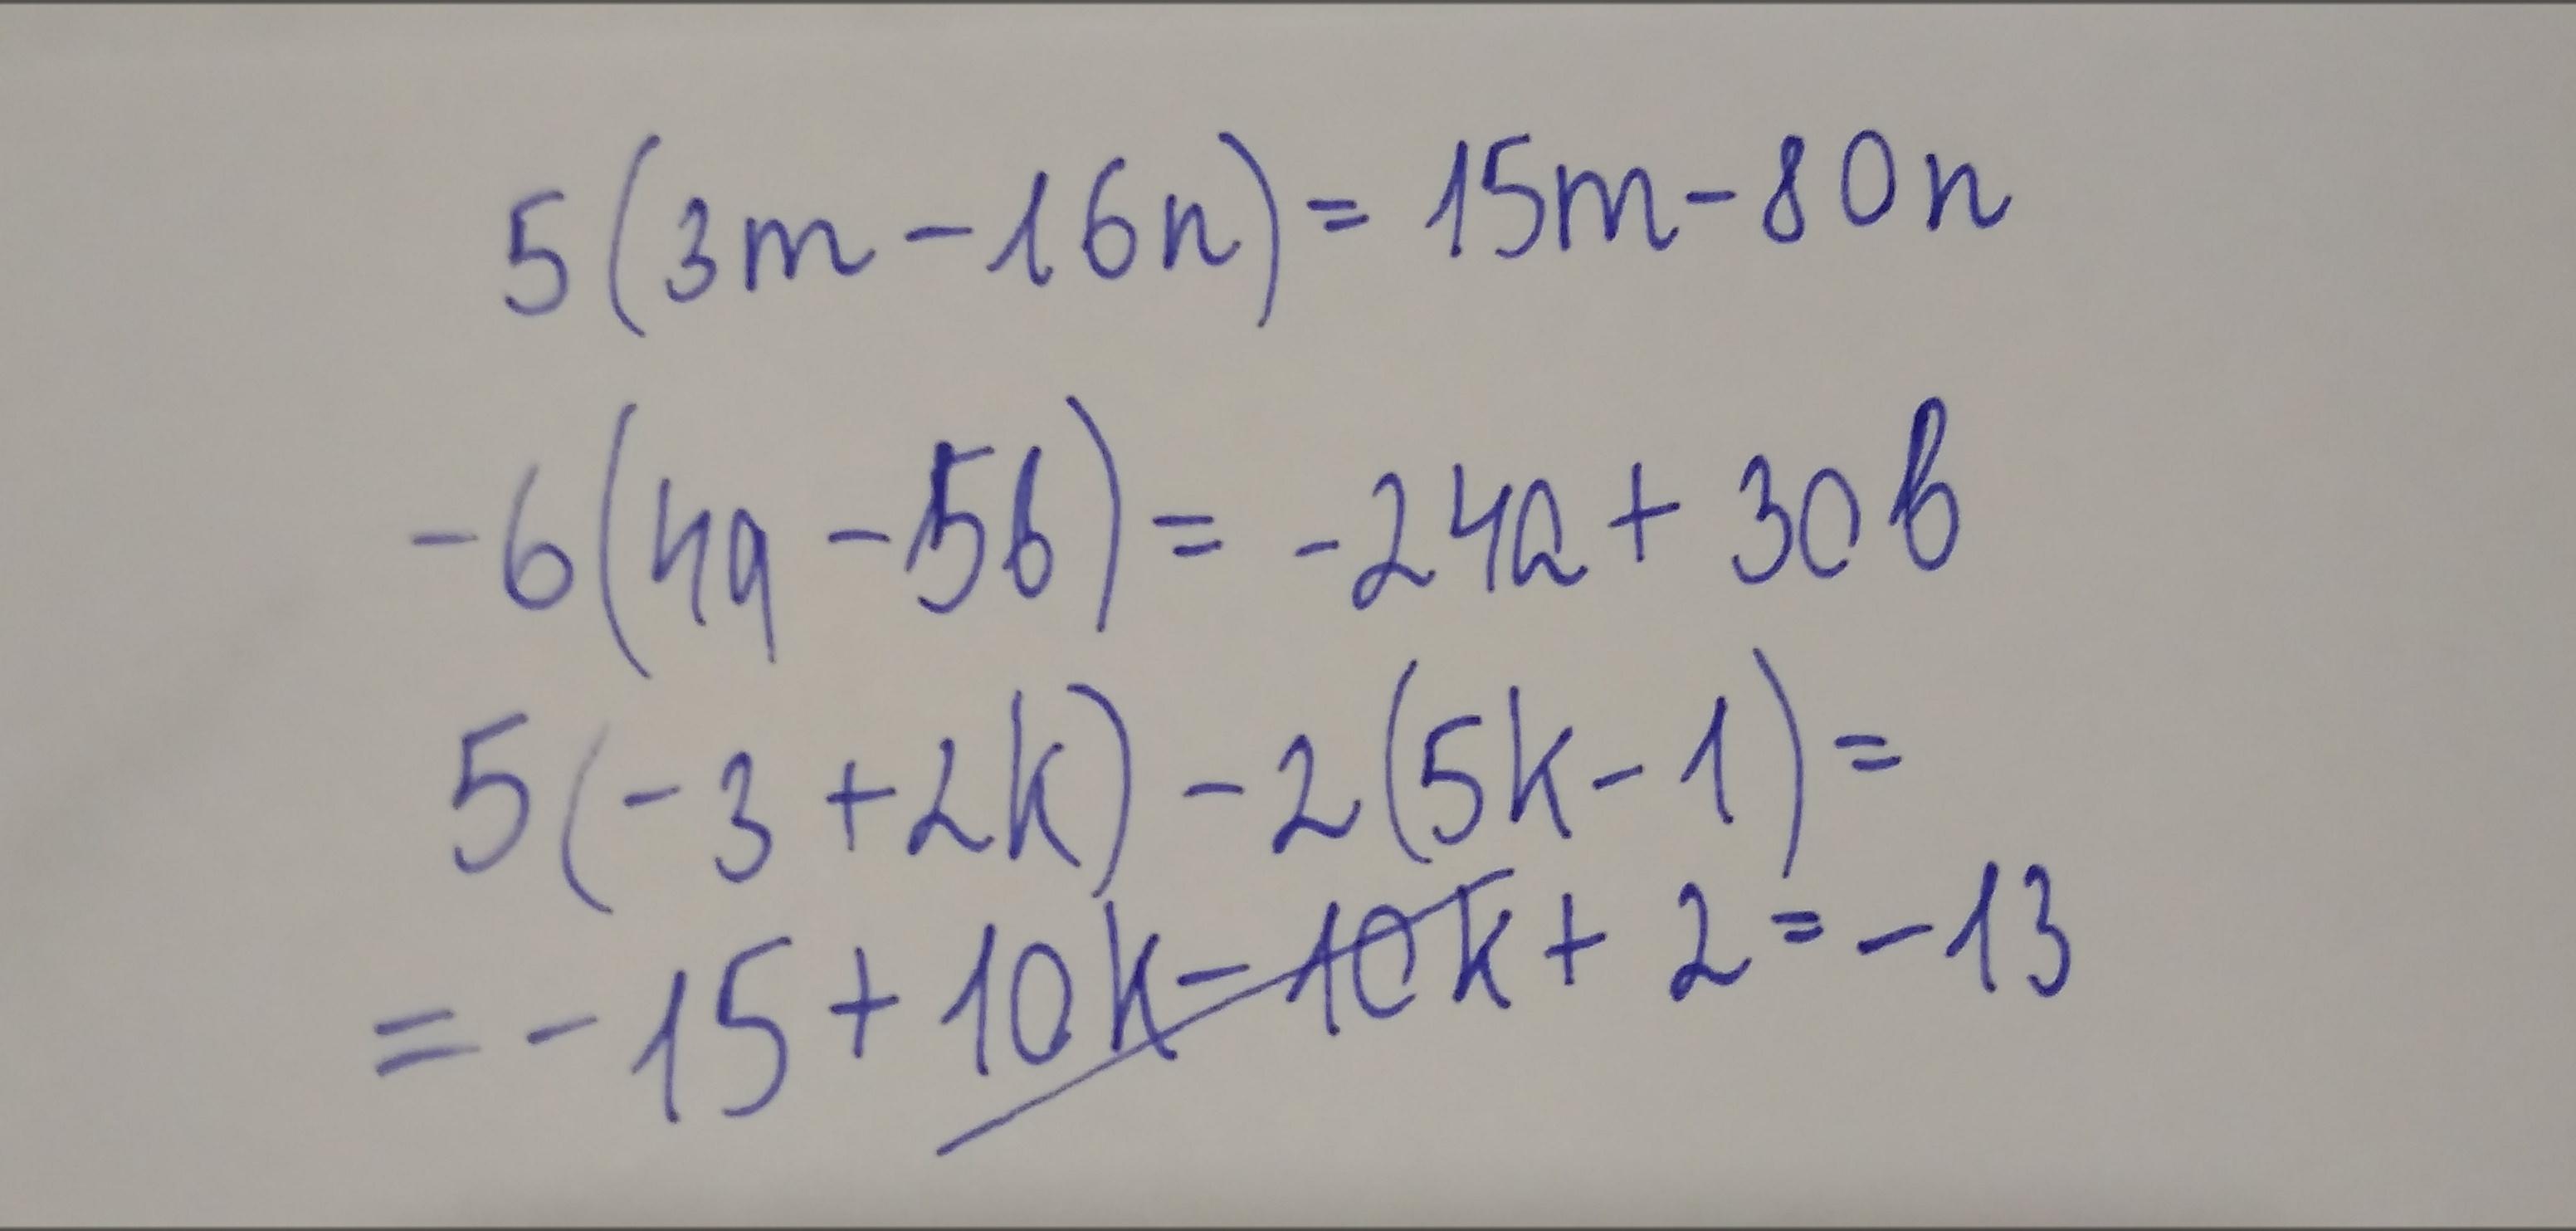 5(3m-16n)=15m-80n
-6(4a-5b)=-24a+30b
5(-3+2k)-2(5k-1)=
=-15+10k-10k+2=-13